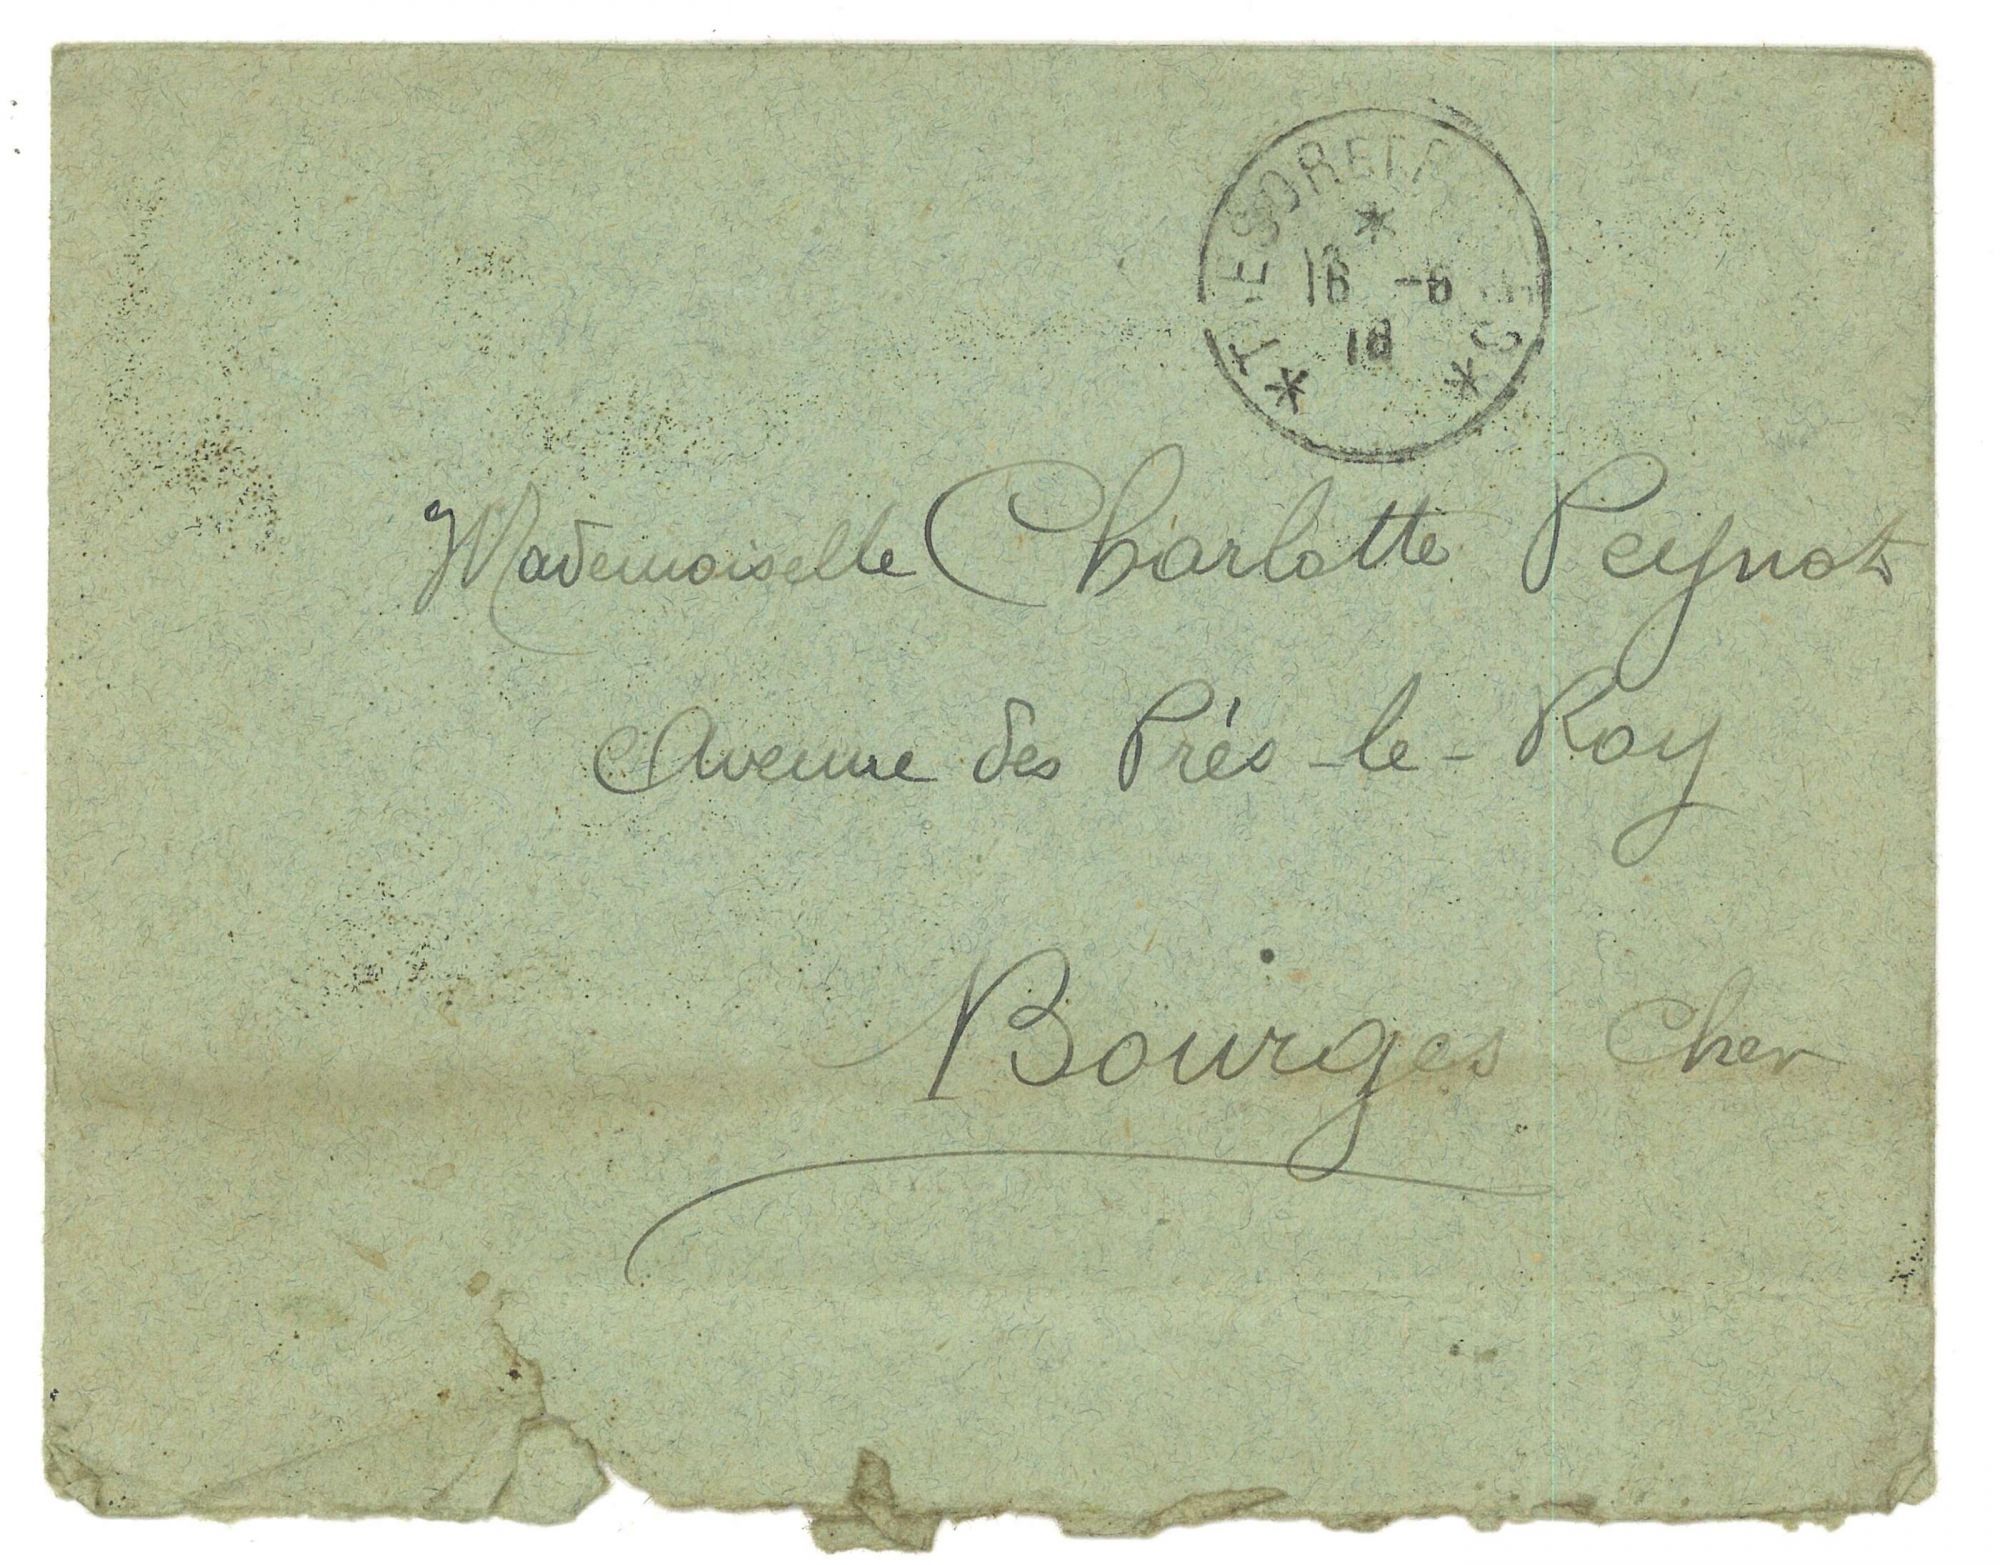 TRESOR ET P
*
16 -6
18
* *
Mademoiselle Charlotte Peynot
Avenue des Prés-le-Roy
Bourges Cher